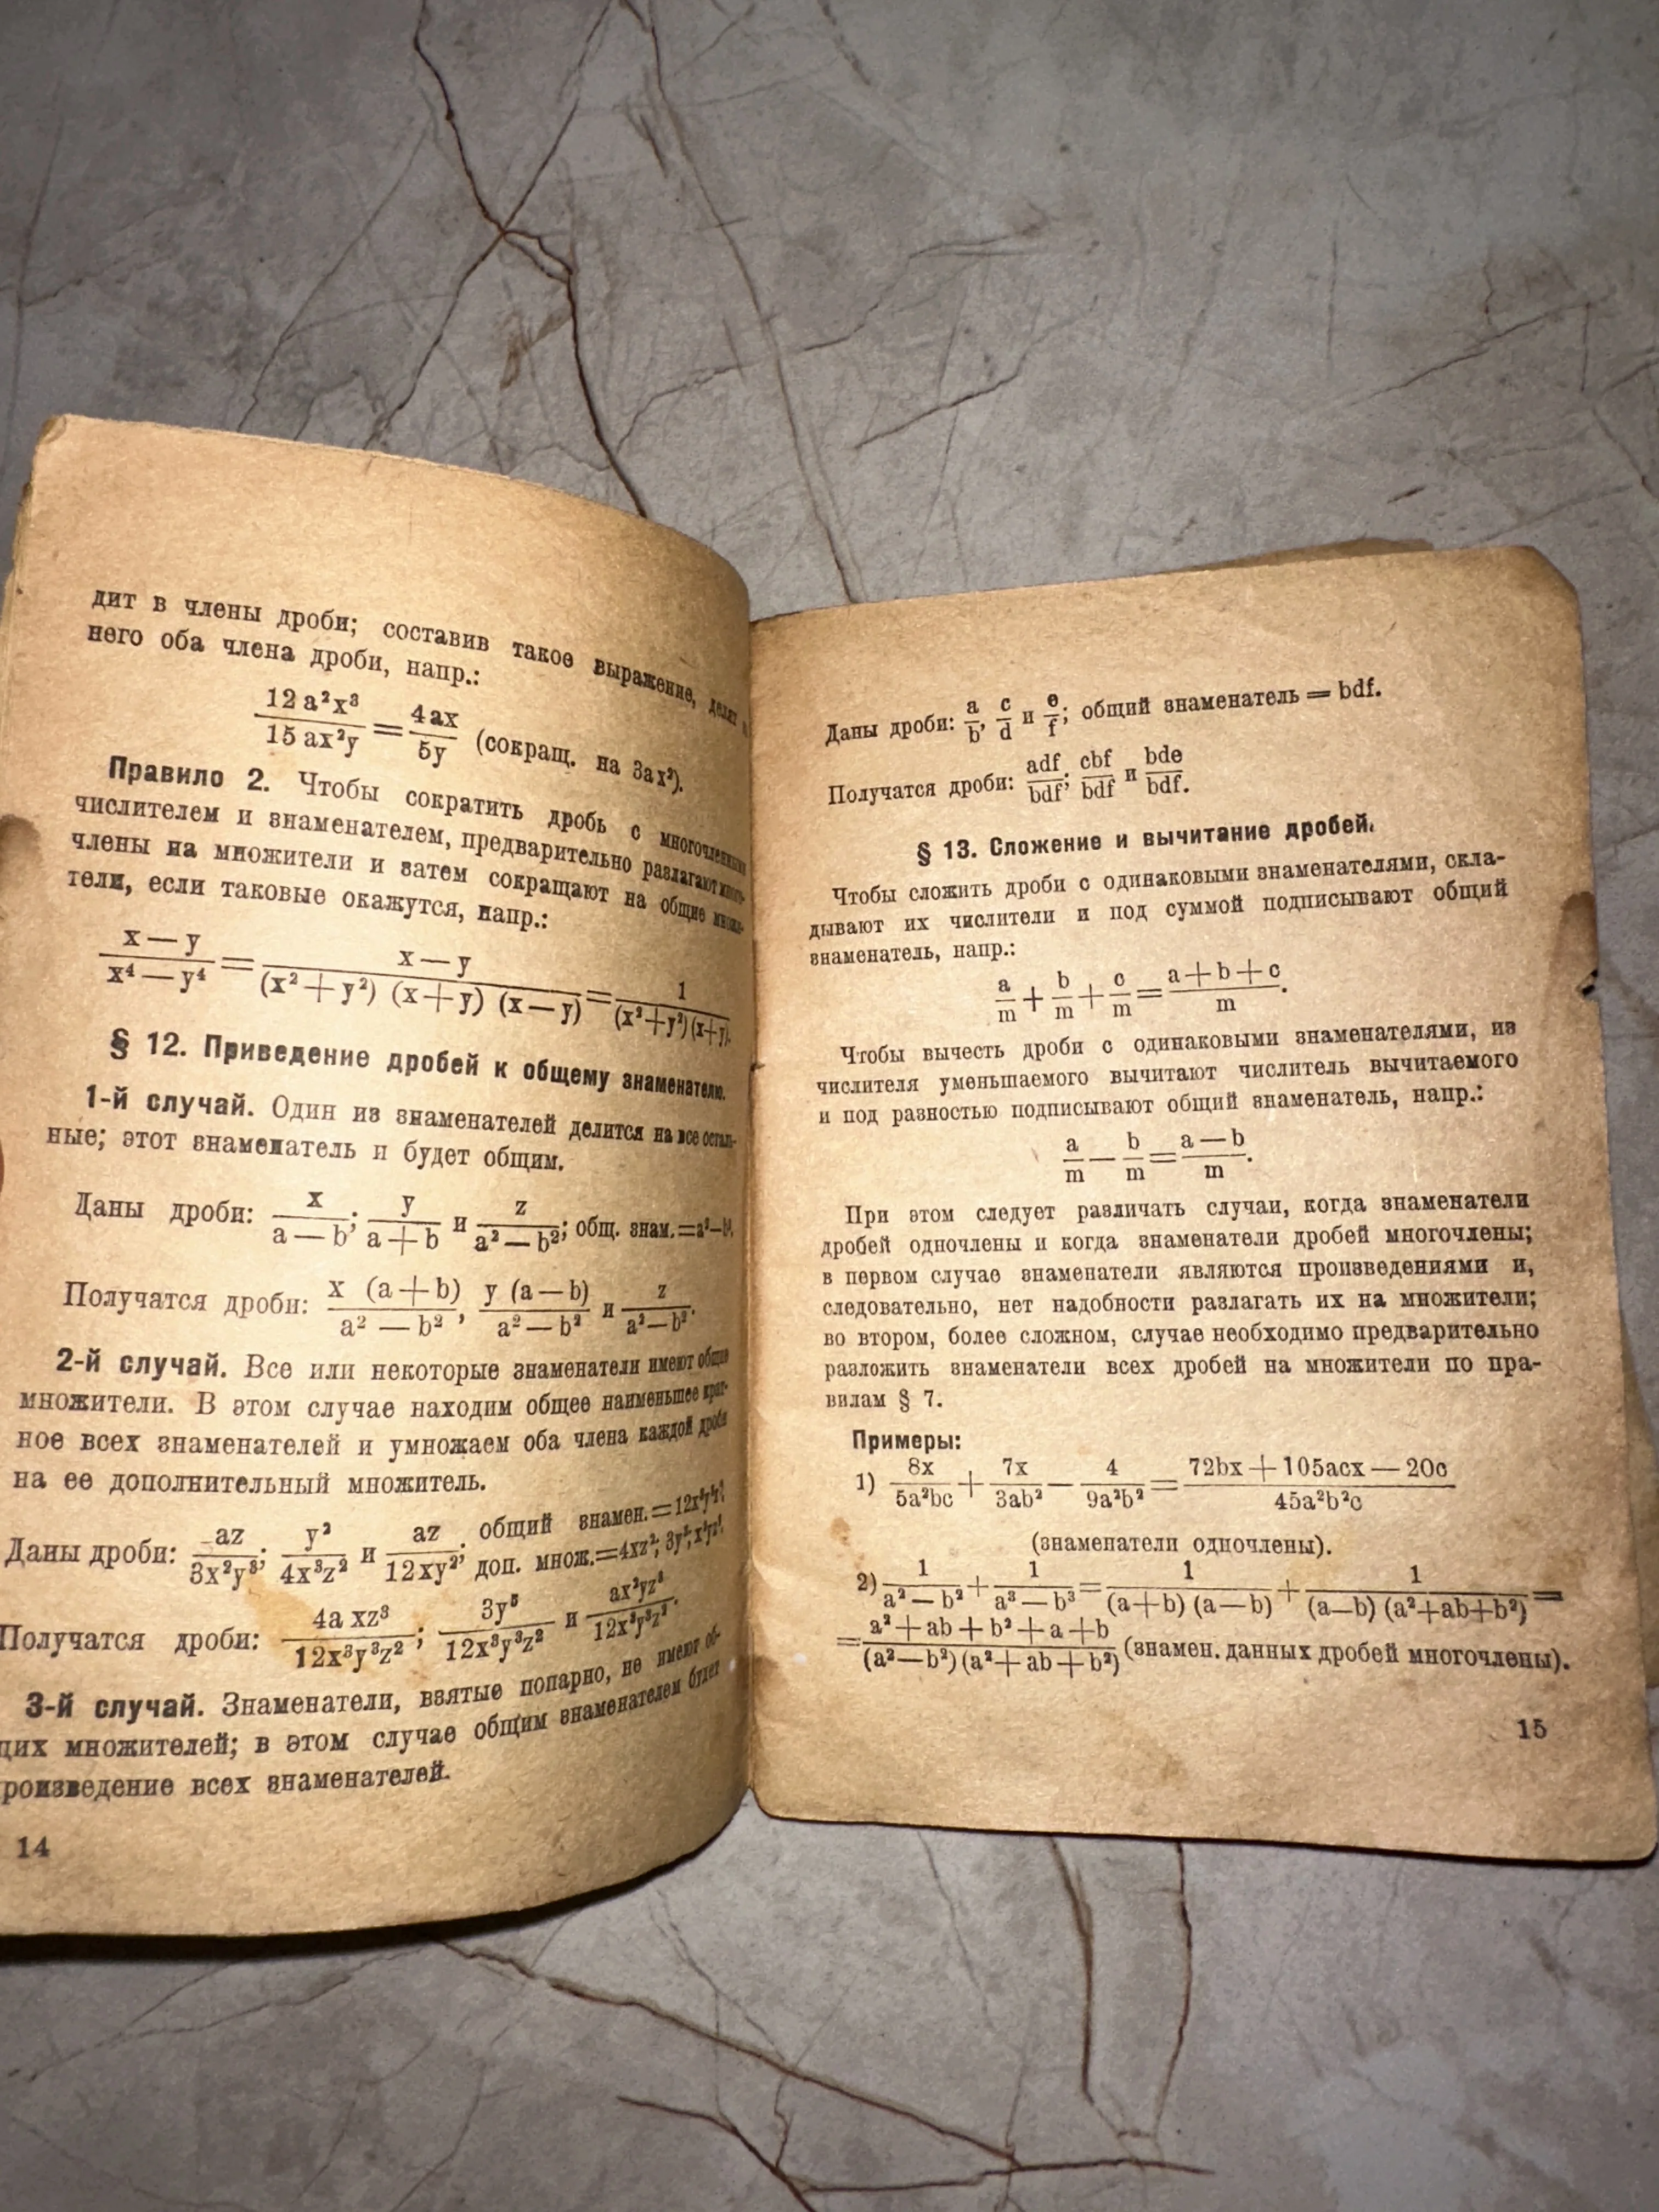 дит в члены дроби; составив такое выражение, делят
него оба члена дроби, напр.:
12 a²x³ / 15 ax²y = 4ax / 5y (сокращ. на 3ax²).
Правило 2. Чтобы сократить дробь с многочленными
числителем и знаменателем, предварительно разлагают много-
члены на множители и затем сокращают на общие множи-
тели, если таковые окажутся, напр.:
x — y / x⁴ — y⁴ = x — y / (x² + y²) (x + y) (x — y) = 1 / (x² + y²) (x + y).
§ 12. Приведение дробей к общему знаменателю.
1-й случай. Один из знаменателей делится на все осталь-
ные; этот знаменатель и будет общим.
Даны дроби: x / a — b; y / a + b и z / a² — b²; общ. знам. = a² — b².
Получатся дроби: x (a + b) / a² — b², y (a — b) / a² — b² и z / a² — b².
2-й случай. Все или некоторые знаменатели имеют общие
множители. В этом случае находим общее наименьшее крат-
ное всех знаменателей и умножаем оба члена каждой дроби
на ее дополнительный множитель.
Даны дроби: az / 3x²y³; y² / 4x³z² и az / 12xy²; общий знамен. = 12x³y³z²; доп. множ. = 4xz²; 3y³;
Получатся дроби: 4a xz³ / 12x³y³z²; 3y⁵ / 12x³y³z² и ax²yz³ / 12x³y³z².
3-й случай. Знаменатели, взятые попарно, не имеют об-
щих множителей; в этом случае общим знаменателем будет
роизведение всех знаменателей.
14
Даны дроби: a / b, c / d и e / f; общий знаменатель = bdf.
Получатся дроби: adf / bdf; cbf / bdf и bde / bdf.
§ 13. Сложение и вычитание дробей.
Чтобы сложить дроби с одинаковыми знаменателями, скла-
дывают их числители и под суммой подписывают общий
знаменатель, напр.:
a / m + b / m + c / m = a + b + c / m.
Чтобы вычесть дроби с одинаковыми знаменателями, из
числителя уменьшаемого вычитают числитель вычитаемого
и под разностью подписывают общий знаменатель, напр.:
a / m — b / m = a — b / m.
При этом следует различать случаи, когда знаменатели
дробей одночлены и когда знаменатели дробей многочлены;
в первом случае знаменатели являются произведениями и,
следовательно, нет надобности разлагать их на множители;
во втором, более сложном, случае необходимо предварительно
разложить знаменатели всех дробей на множители по пра-
вилам § 7.
Примеры:
1) 8x / 5a²bc + 7x / 3ab² — 4 / 9a²b² = 72bx + 105acx — 20c / 45a²b²c
(знаменатели одночлены).
2) 1 / a² — b² + 1 / a³ — b³ = 1 / (a + b) (a — b) + 1 / (a — b) (a² + ab + b²) =
= a² + ab + b² + a + b / (a² — b²) (a² + ab + b²) (знамен. данных дробей многочлены).
15